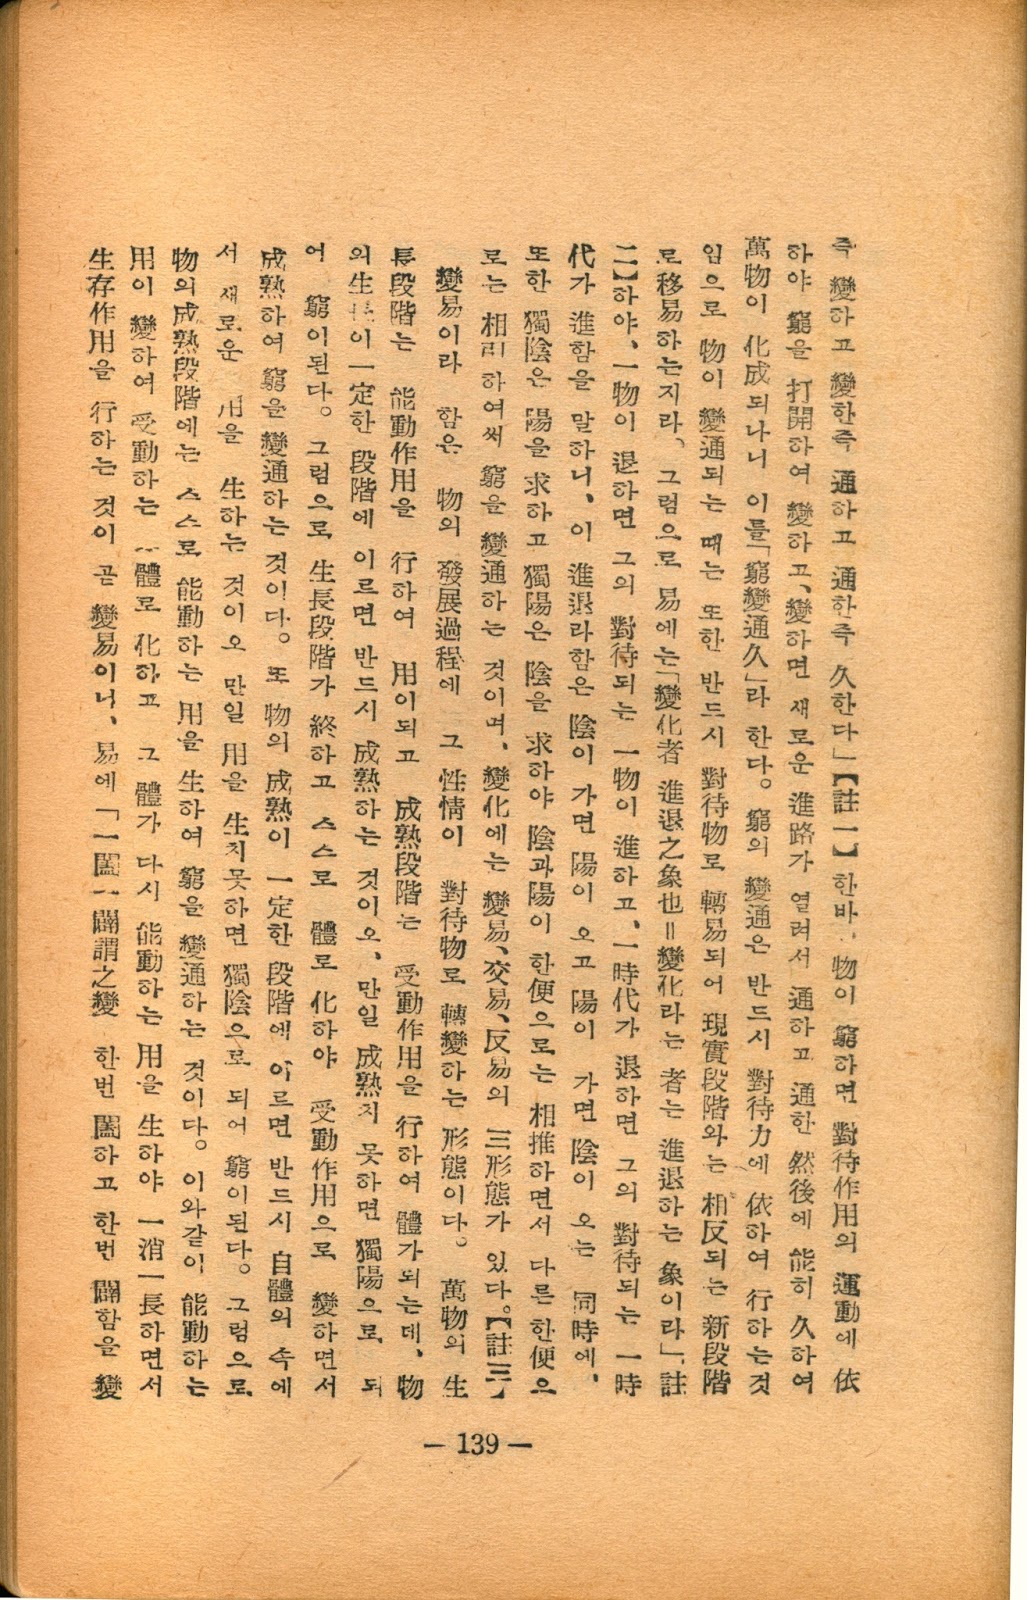 즉 變하고 變한즉 通하고 通한즉 久한다」【註一】한바, 物이 窮하면 對待作用의 運動에 依
하야 窮을 打開하여 變하고、變하면 새로운 進路가 열려서 通하고 通한 然後에 能히 久하여
萬物이 化成되나니 이를「窮變通久」라 한다。窮의 變通은 반드시 對待力에 依하여 行하는것
임으로 物이 變通되는 때는 또한 반드시 對待物로 轉易되어 現實段階와는 相反되는 新段階
로 移易하는지라、그럼으로 易에는「變化者 進退之象也=變化라는 者는 進退하는 象이라」【註
二】하야、一物이 退하면 그의 對待되는 一物이 進하고、一時代가 退하면 그의 對待되는 一時
代가 進함을 말하니、이 進退라함은 陰이 가면 陽이 오고 陽이 가면 陰이 오는 同時에、
또한 獨陰은 陽을 求하고 獨陽은 陰을 求하야 陰과陽이 한便으로는 相推하면서 다른 한便으
로는 相 하여써 窮을 變通하는 것이며、變化에는 變易、交易、反易의 三形態가 있다。【註三】
變易이라 함은 物의 發展過程에 그 性情이 對待物로 轉變하는 形態이다。萬物의 生
長段階는 能動作用을 行하여 用이되고 成熟段階는 受動作用을 行하여 體가되는데、物
의 生 이 一定한 段階에 이르면 반드시 成熟하는 것이오、만일 成熟치 못하면 獨陽으로 되
어 窮이된다。그럼으로 生長段階가 終하고 스스로 體로 化하야 受動作用으로 變하면서
成熟하여 窮을 變通하는 것이다。또 物의 成熟이 一定한 段階에 이르면 반드시 自體의 속에
서 새로운 用을 生하는 것이오 만일 用을 生치못하면 獨陰으로 되어 窮이된다。그럼으로
物의 成熟段階에는 스스로 能動하는 用을 生하여 窮을 變通하는 것이다。이와같이 能動하는
用이 變하여 受動하는 體로 化하고 그 體가 다시 能動하는 用을 生하야 一消一長하면서
生存作用을 行하는 것이 곧 變易이니、易에「一闔一闢謂之變 한번 闔하고 한번 闢함을 變
— 139 —